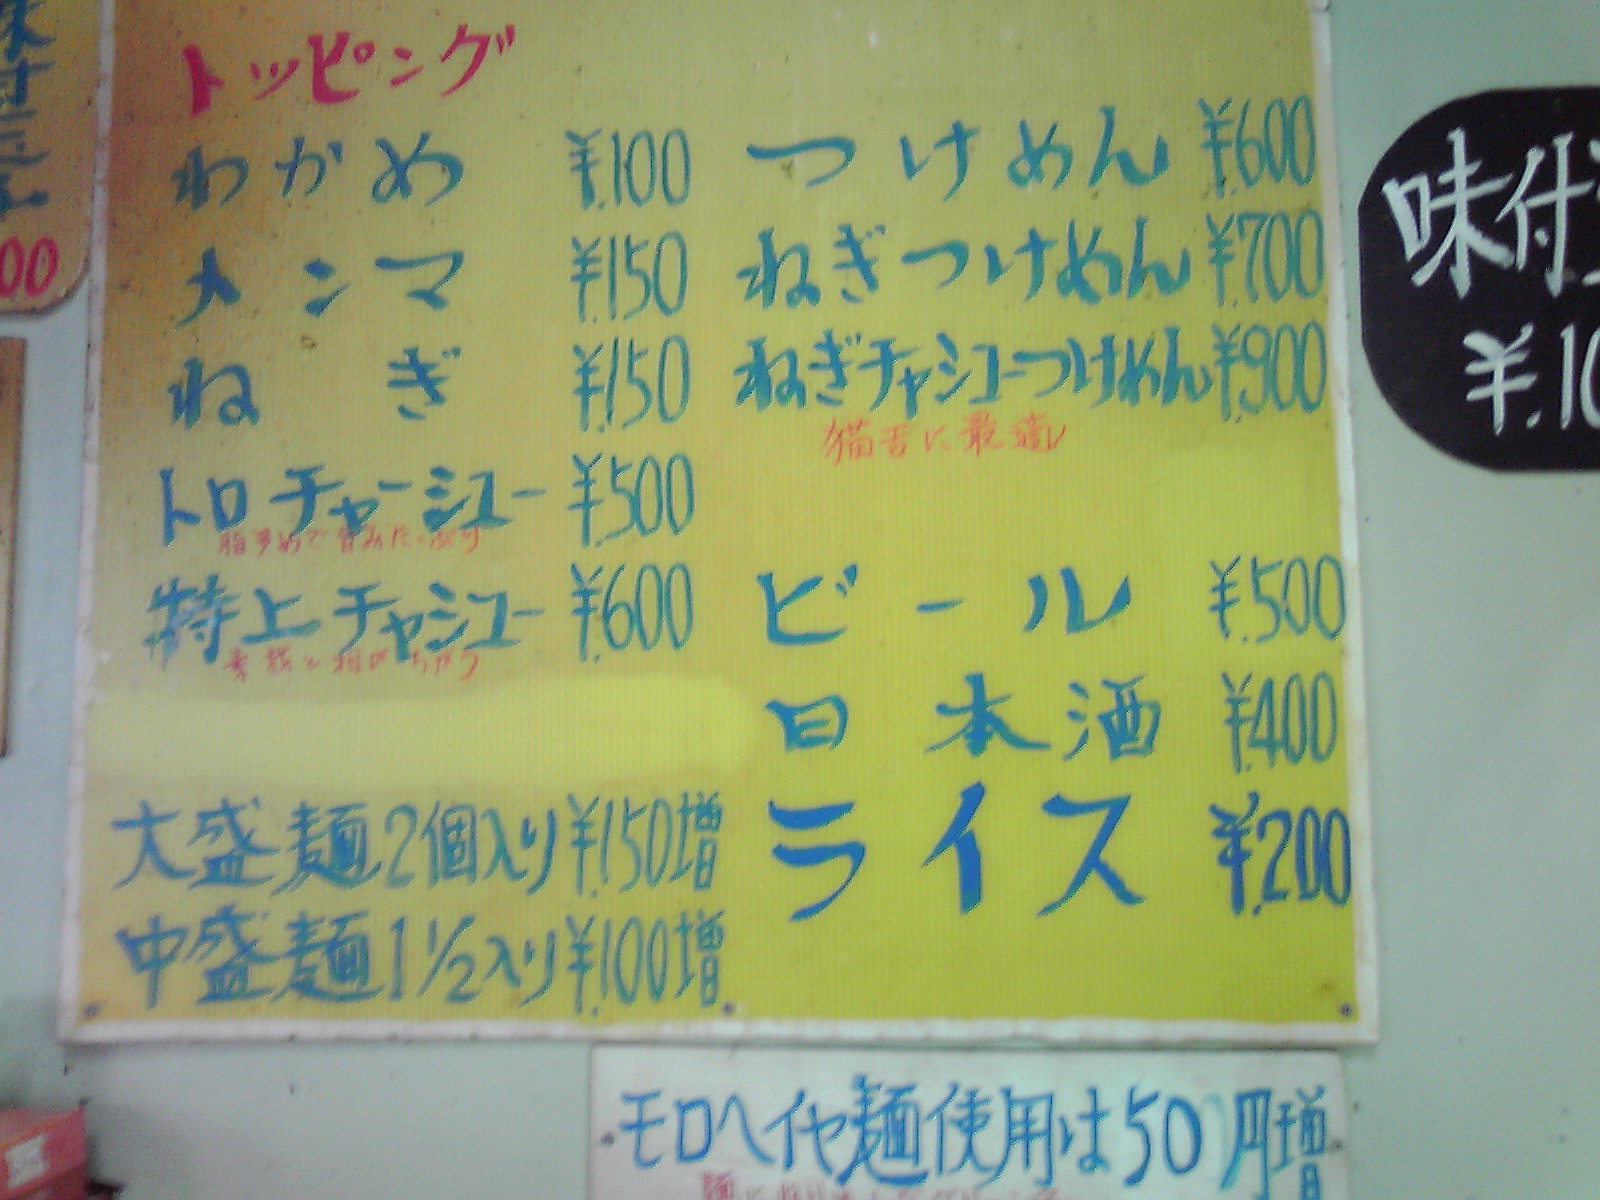 トッピング
わかめ ¥.100
メンマ ¥.150
ねぎ ¥.150
トロチャーシュー ¥.500
脂多めで旨みたっぷり
特上チャシュー ¥.600
大盛麺2個入り ¥.150増
中盛麺1 1/2入り ¥.100増
つけめん ¥.600
ねぎつけめん ¥.700
ねぎチャシューつけめん ¥.900
猫舌に最適
ビール ¥.500
日本酒 ¥.400
ライス ¥.200
味付
¥.10
00
モロヘイヤ麺使用は50円増